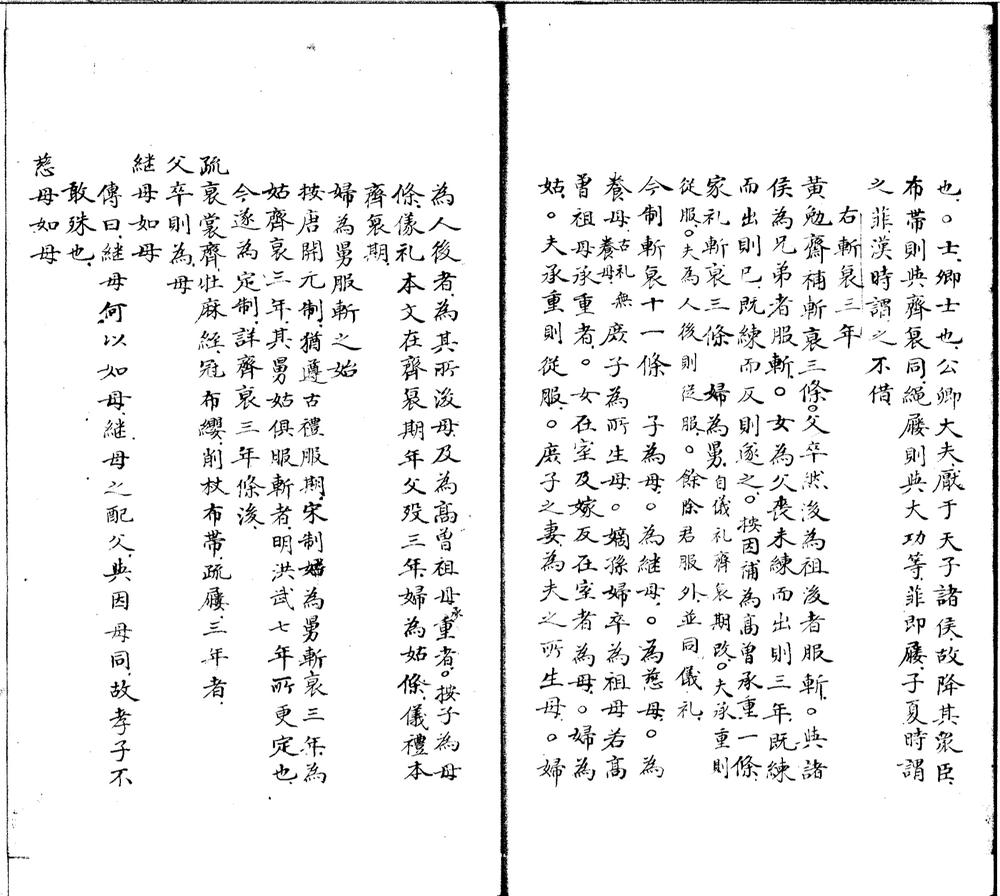 也。○士卿士也公卿大夫厭于天子諸侯故降其衆臣
布帶則與齊衰同繩屨則與大功等菲即屨子夏時謂
之菲漢時謂之不借
右斬衰三年
黃勉齋補斬衰三條○父卒然後為祖後者服斬○與諸
侯為兄弟者服斬○女為父喪未練而出則三年既練
而出則已既練而反則遂之○按因補為高曾承重一條
家礼斬衰三條 婦為舅自儀礼齊衰期改○夫承重則
從服○夫為人後則從服○餘除君服外並同儀礼
今制斬衰十一條 子為母○為継母○為慈母○為
養母古礼無養母庶子為所生母○嫡孫婦卒為祖母若高
曽祖母承重者○女在室及嫁反在室者為母○婦為
姑○夫承重則從服○庶子之妻為夫之所生母○婦
為人後者為其所後母及為高曽祖母承重者○按子為母
條儀礼本文在齊衰期年父歿三年婦為姑條儀禮本
齊衰期
婦為舅服斬之始
按唐開元制猶遵古禮服期宋制婦為舅斬衰三年為
姑齊衰三年其舅姑俱服斬者明洪武七年所更定也
今遂為定制詳齊衰三年條後
疏衰裳齊牡麻絰冠布纓削杖布帶疏屨三年者
父卒則為母
継母如母
傳曰継母何以如母継母之配父與因母同故孝子不
敢殊也
慈母如母